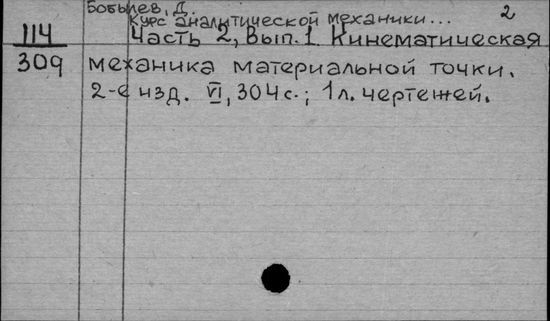 Бобылев, Д.
Курс аналитической механики... 2
114 Часть 2, Вып. 1. Кинематическая
309 механика материальной точки.
2-е изд. VI, 304 с.; 1 л. чертежей.